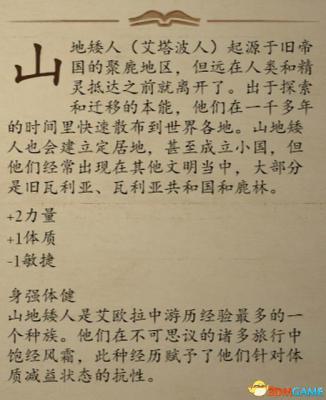 山地矮人（艾塔波人）起源于旧帝
国的聚鹿地区，但远在人类和精
灵抵达之前就离开了。出于探索
和迁移的本能，他们在一千多年
的时间里快速散布到世界各地。山地矮
人也会建立定居地，甚至成立小国，但
他们经常出现在其他文明当中，大部分
是旧瓦利亚、瓦利亚共和国和鹿林。
+2力量
+1体质
-1敏捷
身强体健
山地矮人是艾欧拉中游历经验最多的一
个种族。他们在不可思议的诸多旅行中
饱经风霜，此种经历赋予了他们针对体
质减益状态的抗性。
3DMGAME